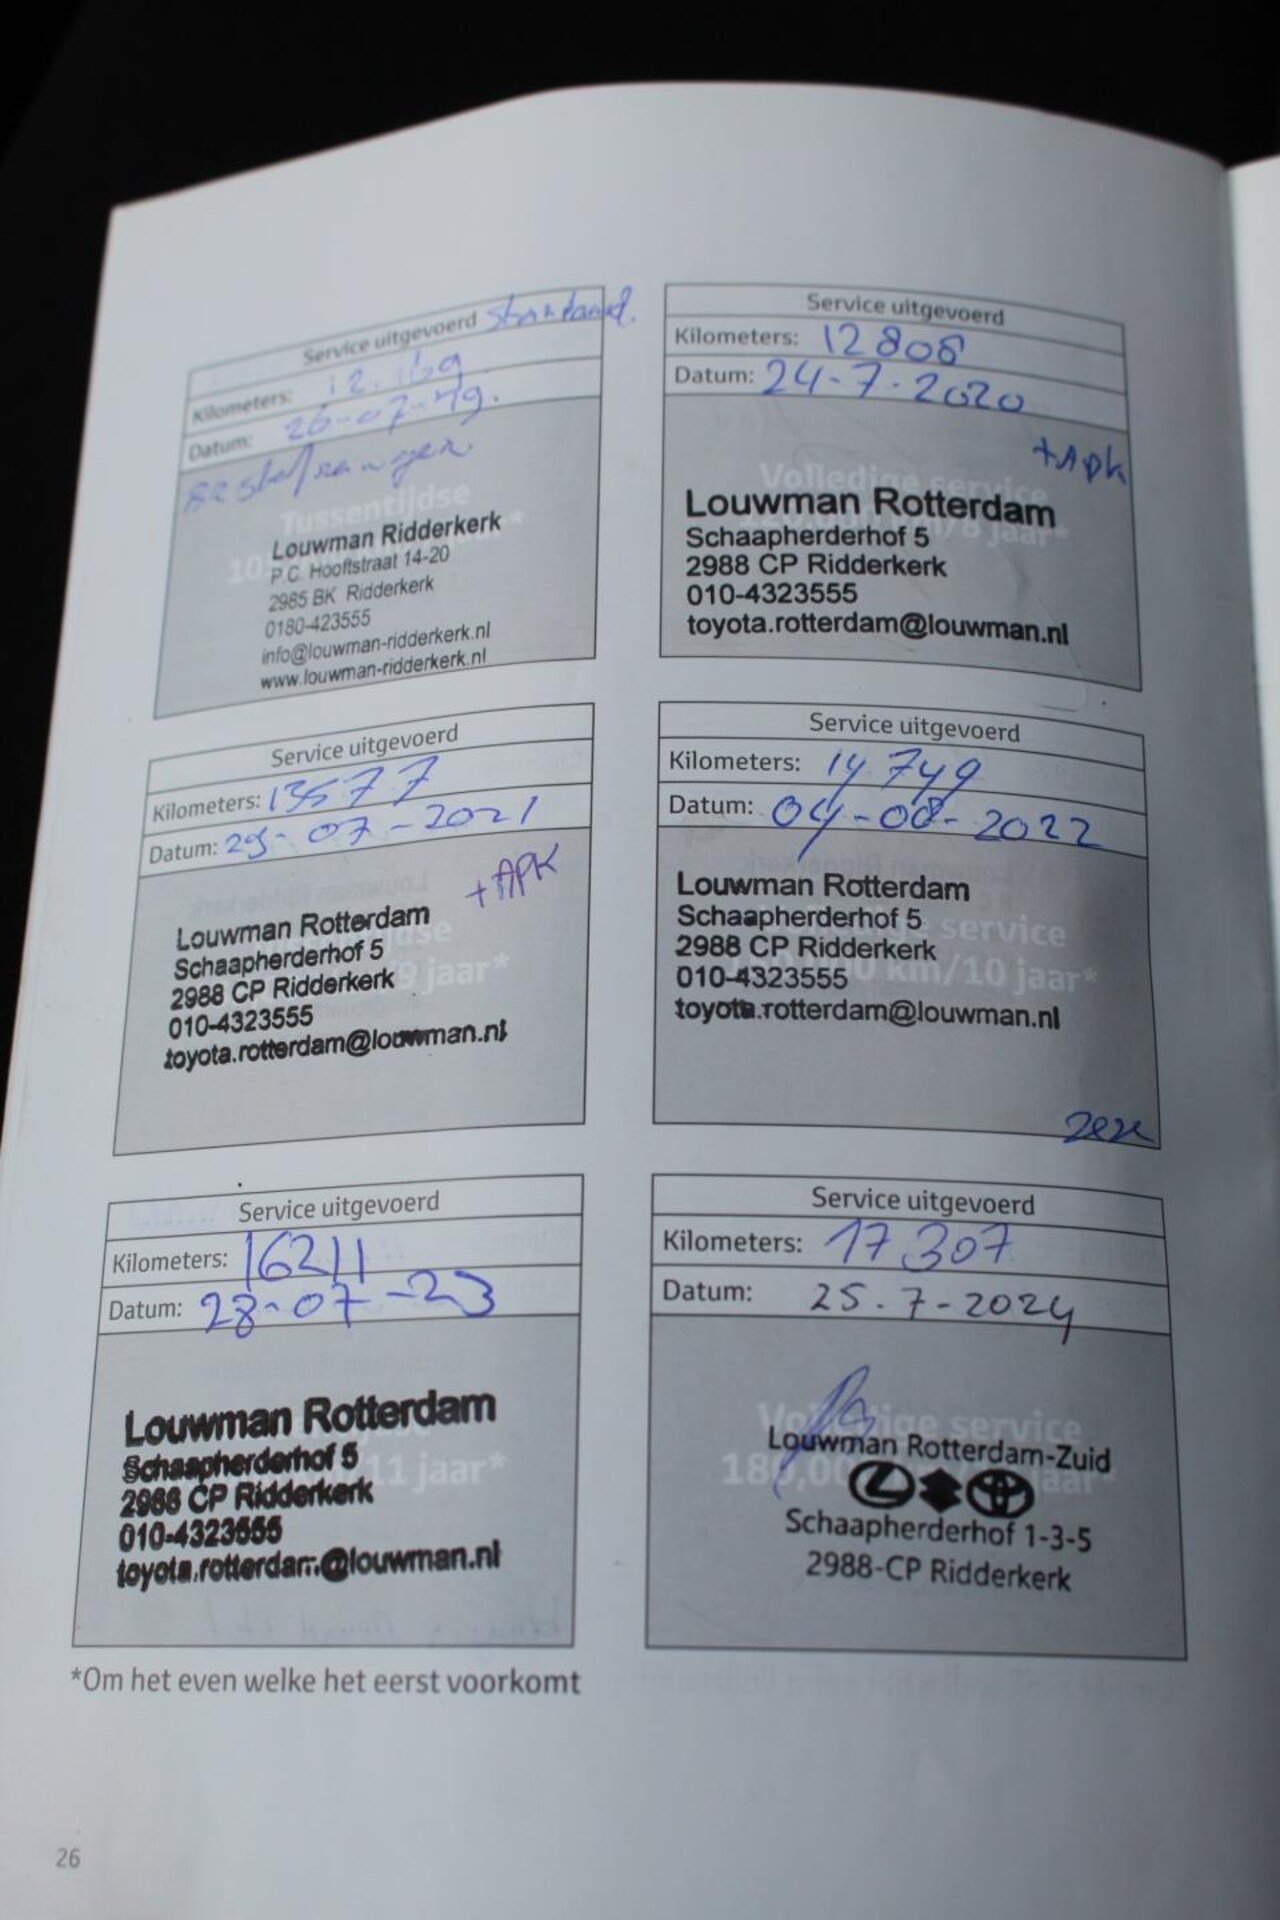 Service uitgevoerd standaard.
Kilometers: 12.169
Datum: 26-07-19.
Tussentijdse
Louwman Ridderkerk
P.C. Hooftstraat 14-20
2985 BK Ridderkerk
0180-423555
info@louwman-ridderkerk.nl
www.louwman-ridderkerk.nl
Service uitgevoerd
Kilometers: 12808
Datum: 24-7-2020
+APK
Volledige service
Louwman Rotterdam
jaar*
Schaapherderhof 5
2988 CP Ridderkerk
010-4323555
toyota.rotterdam@louwman.nl
Service uitgevoerd
Kilometers: 13577
Datum: 29-07-2021
+APK
Louwman Rotterdam
Schaapherderhof 5
2988 CP Ridderkerk
9 jaar*
010-4323555
toyota.rotterdam@louwman.nl
Service uitgevoerd
Kilometers: 14.749
Datum: 04-08-2022
Louwman Rotterdam
Schaapherderhof 5
service
2988 CP Ridderkerk
km/10 jaar*
010-4323555
toyota.rotterdam@louwman.nl
Service uitgevoerd
Kilometers: 16211
Datum: 28-07-23
Louwman Rotterdam
Schaapherderhof 5
11 jaar*
2988 CP Ridderkerk
010-4323555
toyota.rotterdam@louwman.nl
Service uitgevoerd
Kilometers: 17.307
Datum: 25.7-2024
Volledige service
Louwman Rotterdam-Zuid
jaar*
Schaapherderhof 1-3-5
2988-CP Ridderkerk
*Om het even welke het eerst voorkomt
26